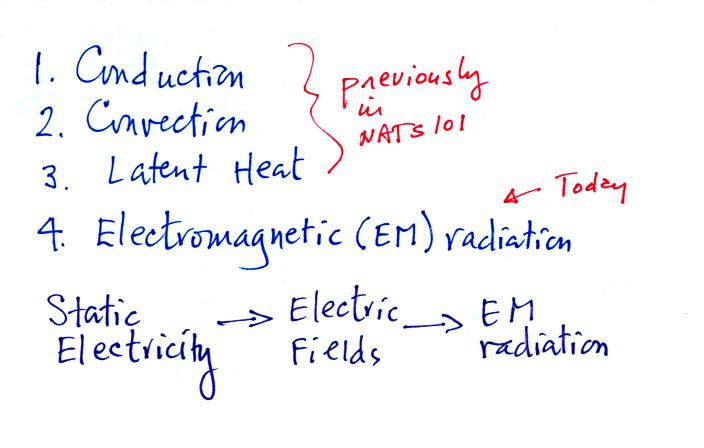 1. Conduction
2. Convection
3. Latent Heat
previously
in
NATS 101
← Today
4. Electromagnetic (EM) radiation
Static → Electric → EM
Electricity Fields radiation